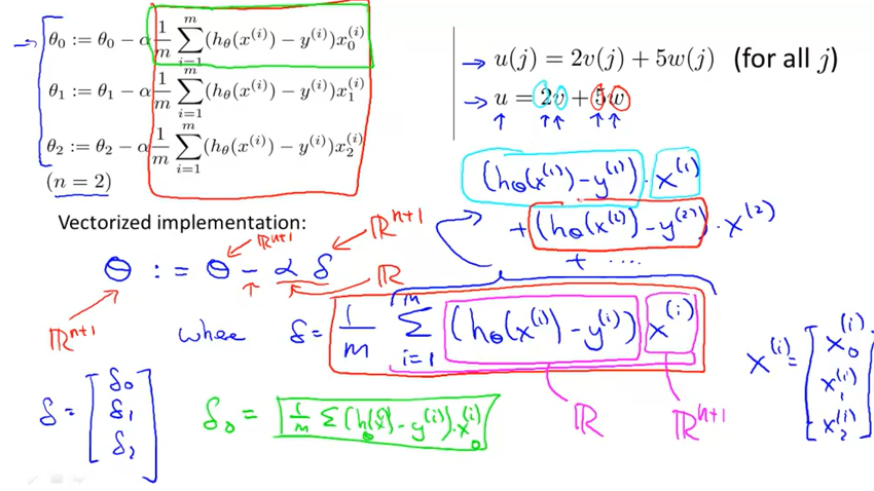 → θ₀ := θ₀ − α 1/m ∑_{i=1}^{m} (h_θ(x^(i)) − y^(i)) x₀^(i)
θ₁ := θ₁ − α 1/m ∑_{i=1}^{m} (h_θ(x^(i)) − y^(i)) x₁^(i)
θ₂ := θ₂ − α 1/m ∑_{i=1}^{m} (h_θ(x^(i)) − y^(i)) x₂^(i)
(n = 2)
→ u(j) = 2v(j) + 5w(j) (for all j)
→ u = 2v + 5w
↑ ↑↑ ↑↑
(h_θ(x^(1)) − y^(1)) · x^(1)
+ (h_θ(x^(2)) − y^(2)) · x^(2)
+ ....
Vectorized implementation:
ℝ^{n+1} ℝ^{n+1}
θ := θ − α δ
ℝ^{n+1} ↑ ℝ
where δ = 1/m ∑_{i=1}^{m} (h_θ(x^(i)) − y^(i)) x^(i)
ℝ ℝ^{n+1}
x^(i) = [x₀^(i) x₁^(i) x₂^(i)]
δ = [δ₀ δ₁ δ₂]
δ₀ = 1/m Σ (h_θ(x^(i)) − y^(i)) · x₀^(i)